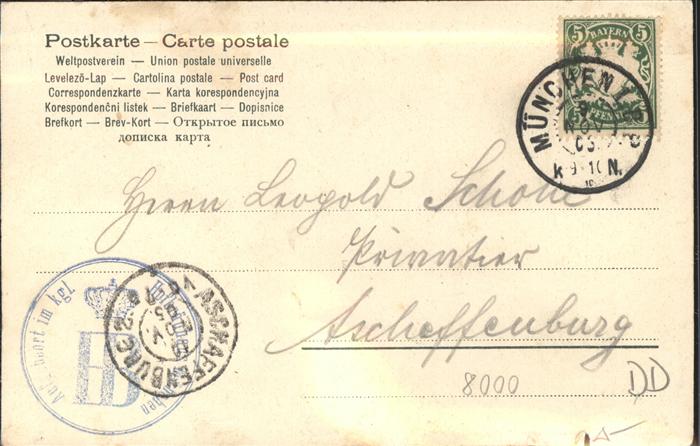 Postkarte — Carte postale
Weltpostverein — Union postale universelle
Levelező-Lap — Cartolina postale — Post card
Correspondenzkarte — Karta korespondencyjna
Korespondenční listek — Briefkaart — Dopisnice
Brefkort — Brev-Kort — Открытое письмо
дописка карта
5 BAYERN 5
PFENNIG
MÜNCHEN
NOV
03
9-10 N.
Herrn Leopold Schöne
Privatier
Aschaffenburg
ASCHAFFENBURG 2
im kgl.
HB
8000
DD